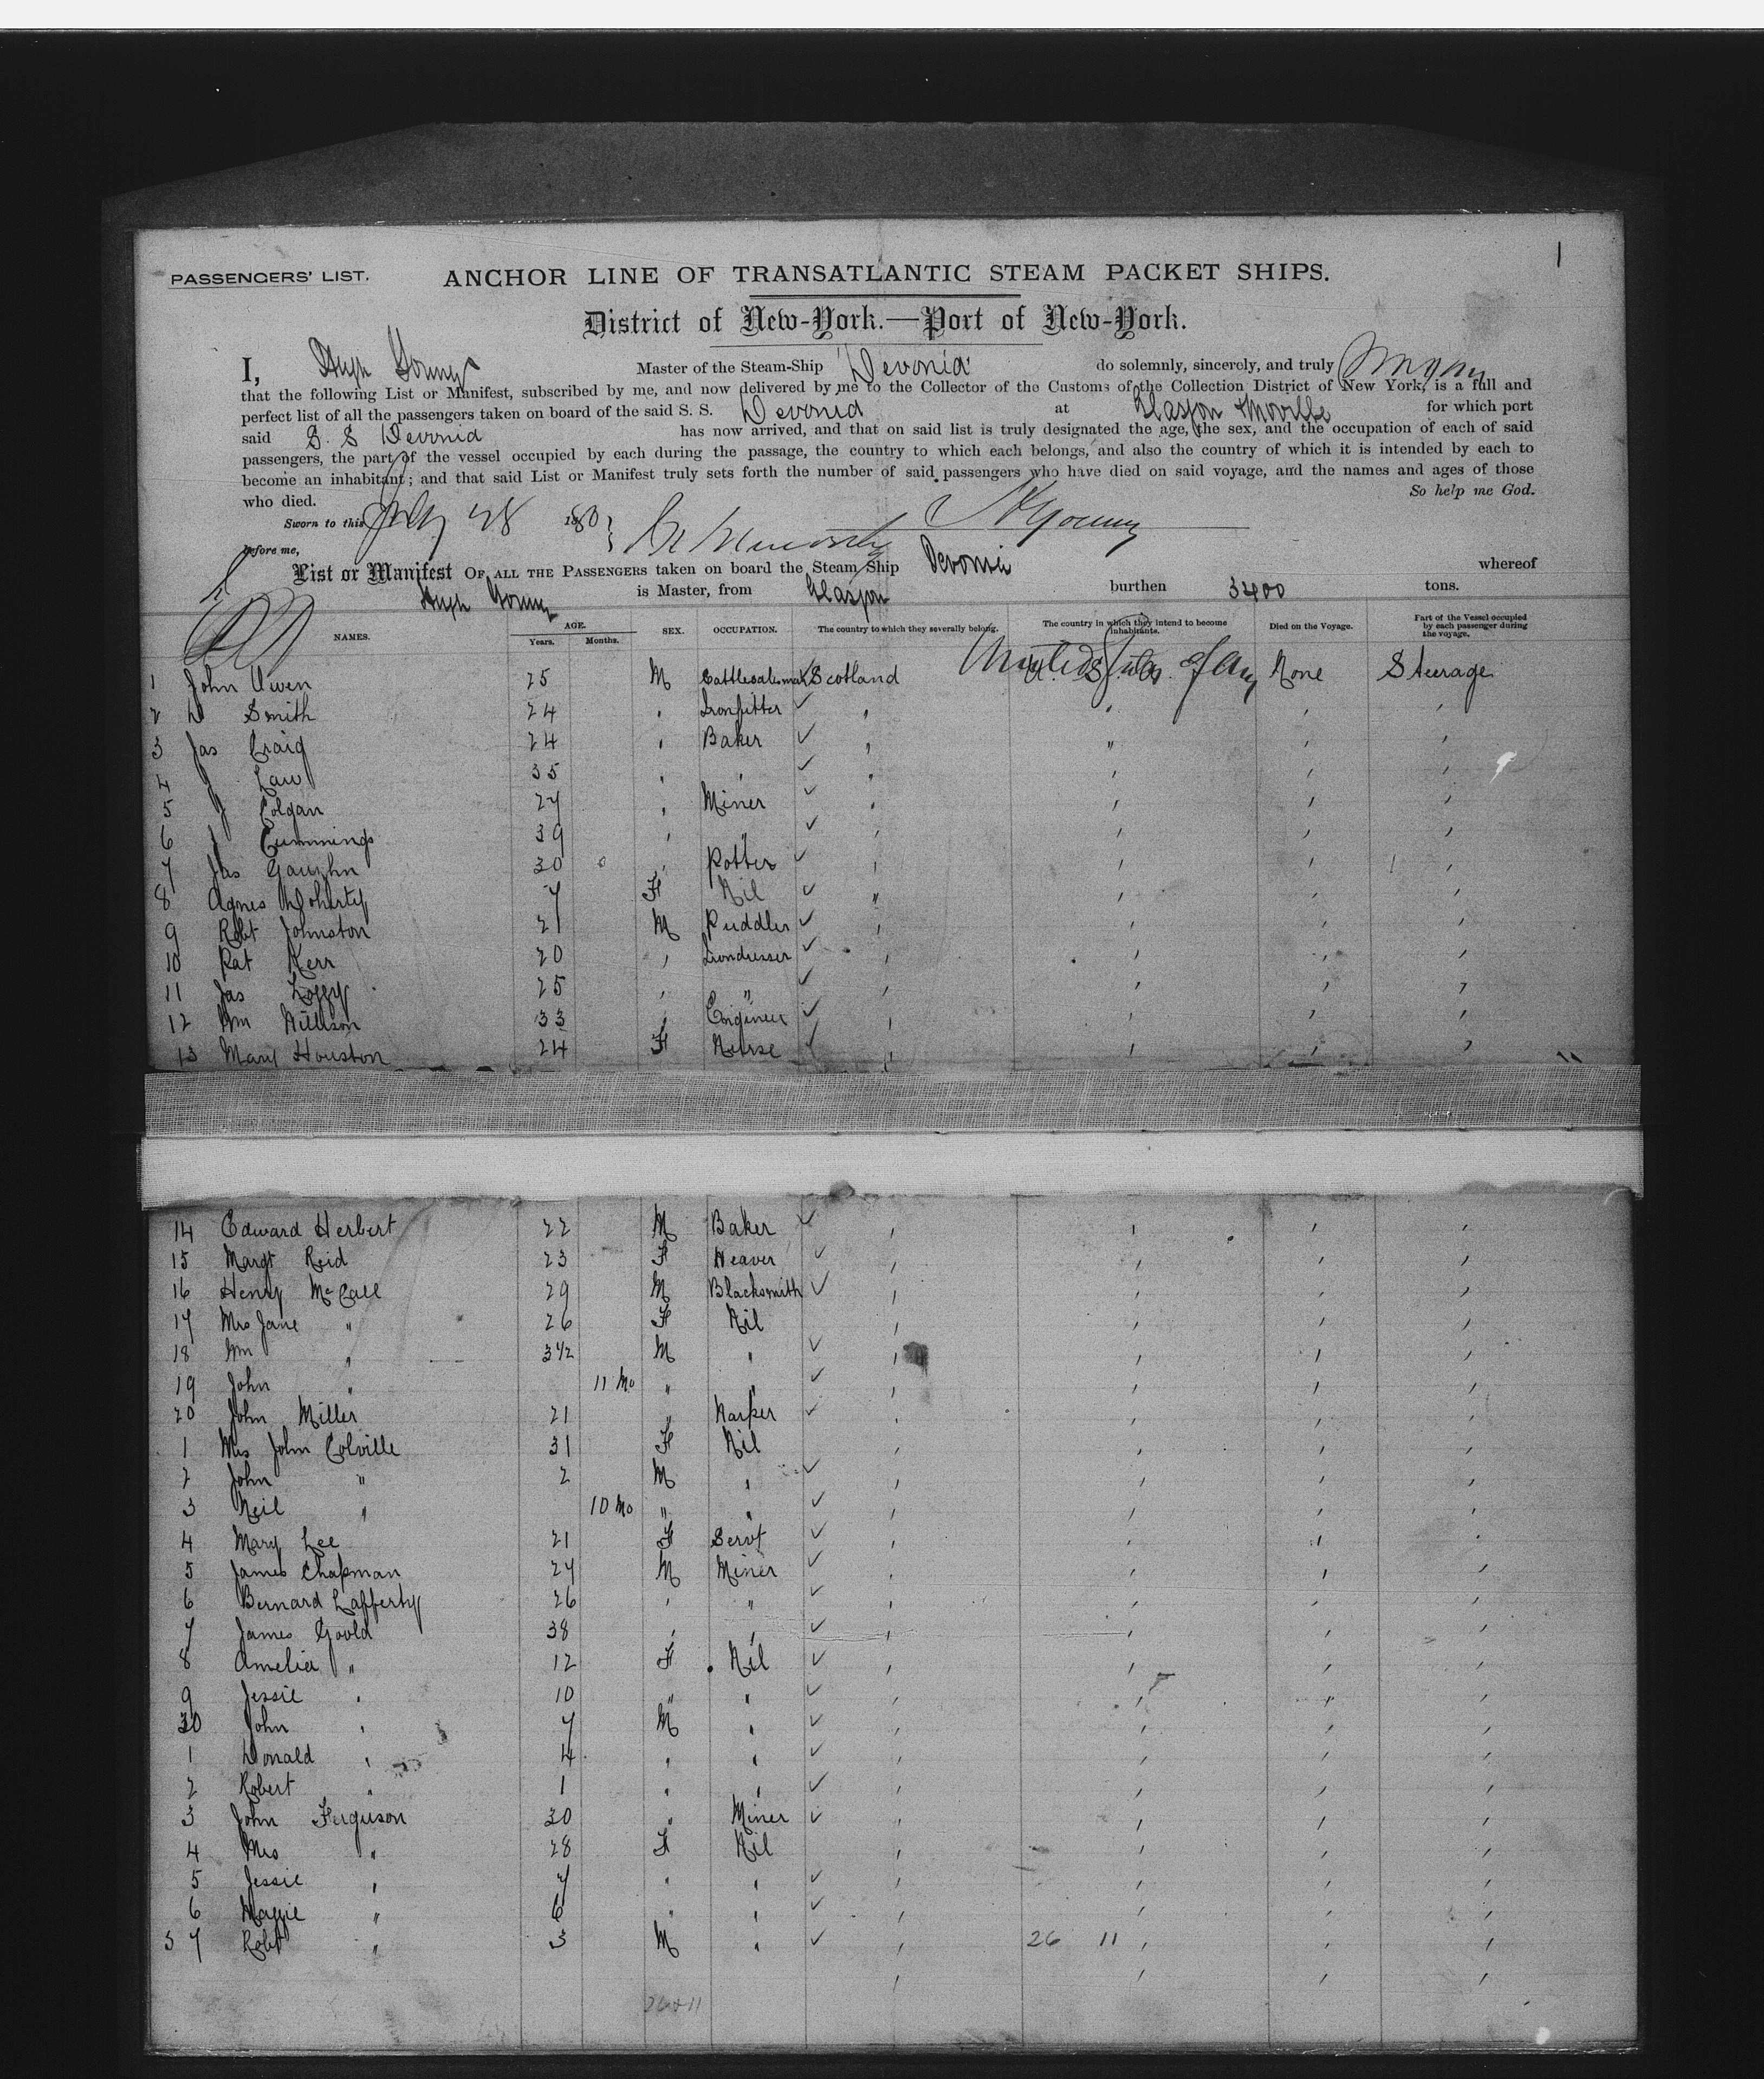 1
PASSENGERS' LIST.
ANCHOR LINE OF TRANSATLANTIC STEAM PACKET SHIPS.
District of New-York.—Port of New-York.
I, Hugh Young Master of the Steam-Ship Devonia do solemnly, sincerely, and truly
that the following List or Manifest, subscribed by me, and now delivered by me to the Collector of the Customs of the Collection District of New York, is a full and
perfect list of all the passengers taken on board of the said S. S. Devonia at Glasgow & Moville for which port
said S. S Devonia has now arrived, and that on said list is truly designated the age, the sex, and the occupation of each of said
passengers, the part of the vessel occupied by each during the passage, the country to which each belongs, and also the country of which it is intended by each to
become an inhabitant; and that said List or Manifest truly sets forth the number of said passengers who have died on said voyage, and the names and ages of those
who died. So help me God.
Sworn to this July 28 1880 H Young
before me,
List or Manifest OF ALL THE PASSENGERS taken on board the Steam Ship Devonia whereof
Hugh Young is Master, from Glasgow burthen 3400 tons.
NAMES. AGE. Years. Months. SEX. OCCUPATION. The country to which they severally belong. The country in which they intend to become inhabitants. Died on the Voyage. Part of the Vessel occupied by each passenger during the voyage.
1 John Owen 25 M Cattlesalesman ✓ Scotland United States of Am None Steerage
2 D Smith 24 " Ironfitter ✓ " " " "
3 Jas Craig 24 " Baker ✓ " " " "
4 J Law 35 " " ✓ " " " "
5 J Colgan 27 " Miner ✓ " " " "
6 J Cummings 39 " " ✓ " " " "
7 Jas Gaughn 30 " Potter ✓ " " " "
8 Agnes Doherty 7 F Nil ✓ " " " "
9 Robt Johnston 21 M Puddler ✓ " " " "
10 Pat Kerr 20 " Irondresser ✓ " " " "
11 Jas 25 " " ✓ " " " "
12 Wm Willison 33 " Engineer ✓ " " " "
13 Mary Houston 24 F Nurse ✓ " " " "
14 Edward Herbert 22 M Baker ✓ " " " "
15 Margt Reid 23 F Weaver ✓ " " " "
16 Henry McCall 29 M Blacksmith ✓ " " " "
17 Mrs Jane " 26 F Nil " " " "
18 Wm " 3 1/2 M " ✓ " " " "
19 John " 11 Mo " " ✓ " " " "
20 John Miller 21 " ✓ " " " "
1 Mrs John Colville 31 F Nil " " " "
2 John " 2 M " ✓ " " " "
3 Neil " 10 Mo " " ✓ " " " "
4 Mary Lee 21 F Servt ✓ " " " "
5 James Chapman 24 M Miner ✓ " " " "
6 Bernard Lafferty 26 " " ✓ " " " "
7 James Goold 38 " " ✓ " " " "
8 Amelia " 12 F Nil ✓ " " " "
9 Jessie " 10 " " ✓ " " " "
30 John " 7 M " ✓ " " " "
1 Donald " 4 " " ✓ " " " "
2 Robert " 1 " " ✓ " " " "
3 John Ferguson 30 " Miner ✓ " " " "
4 Mrs " 28 F Nil " " " "
5 Jessie " 7 " " ✓ " " " "
6 Maggie " 6 " " ✓ " " " "
37 Robt " 3 M " ✓ " 26 11 " " "
" " " "
26+11